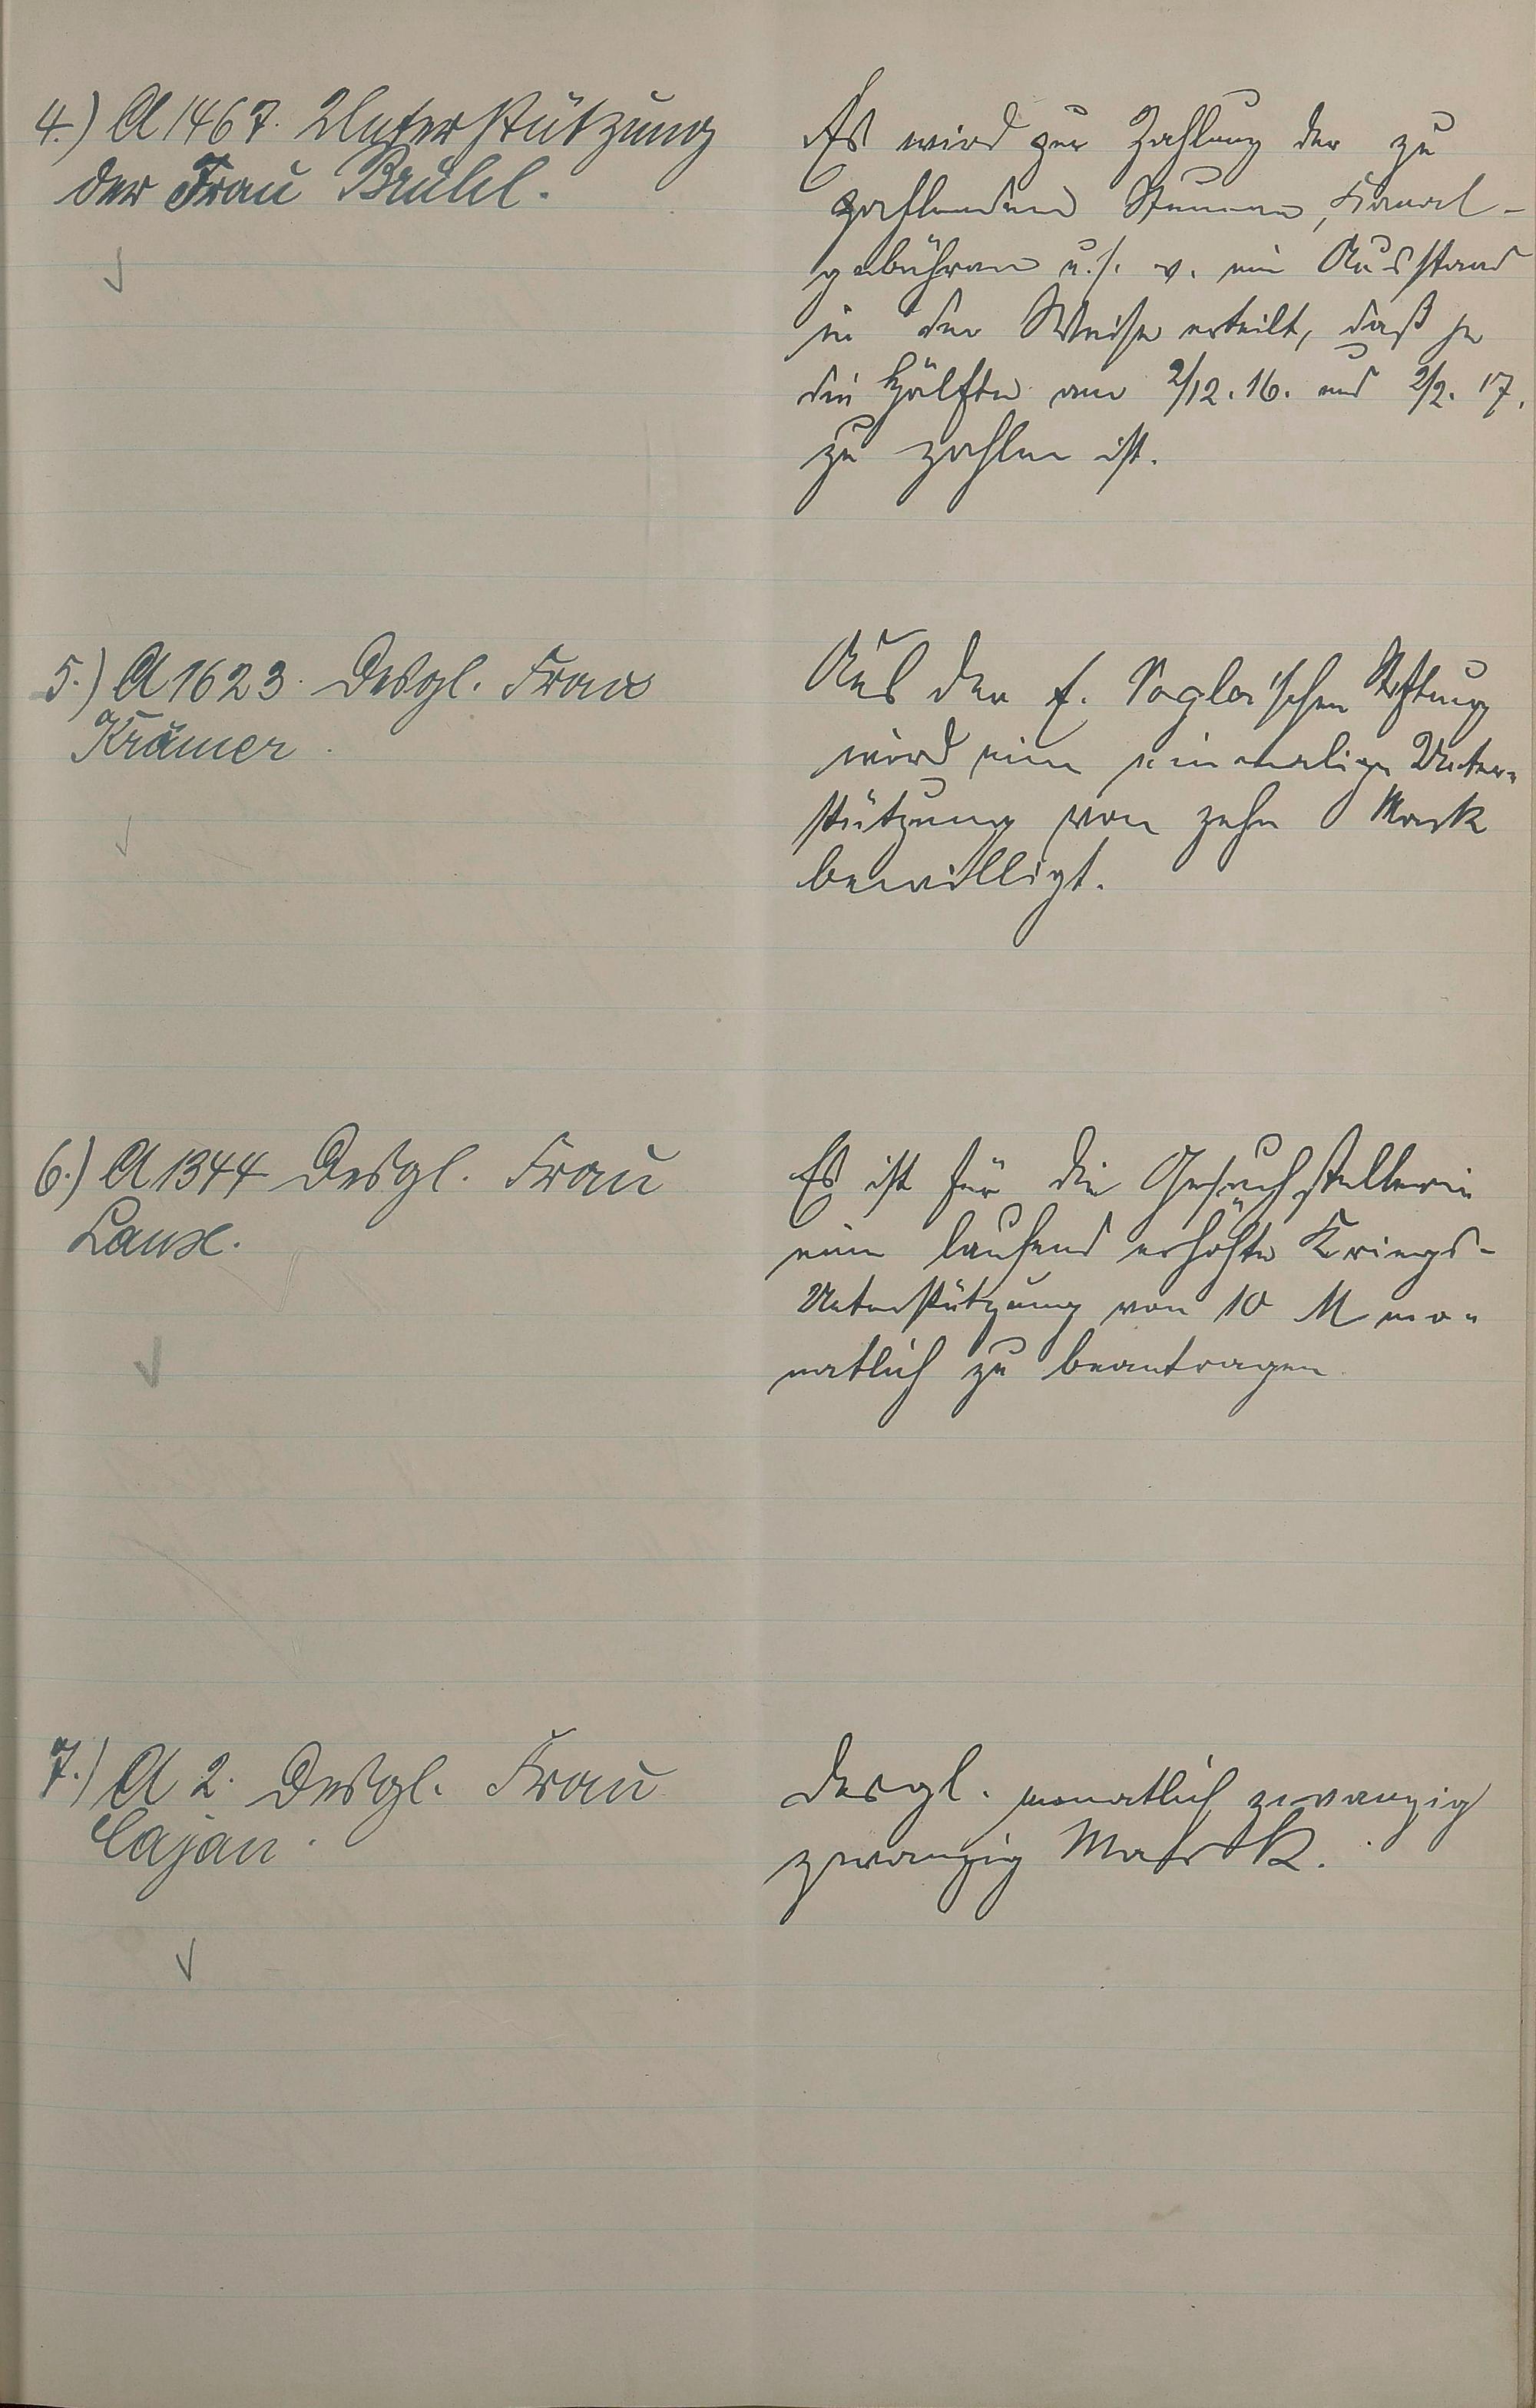 4.) A 1467. Unterstützung
der Frau Brühl.
Es wird zur Zahlung der zu
zahlenden Steuern, Kanal-
gebühren u.s.w. ein Ausstand
in der Weise erteilt, daß je
die Hälfte am 2/12.16. und 2/2.17.
zu zahlen ist.
5.) A 1623. Desgl. Frau
Krämer.
Aus der schen Stiftung
wird eine einmalige Unter-
stützung von zehn Mark
bewilligt.
6.) A 1344 Desgl. Frau
Laux.
Es ist für die Gesuchstellerin
eine laufend erhöhte Kriegs-
Unterstützung von 10 M mo-
natlich zu beantragen
7.) A 2. Desgl. Frau
Cajan.
Desgl. monatlich zwanzig
zwanzig Mark.